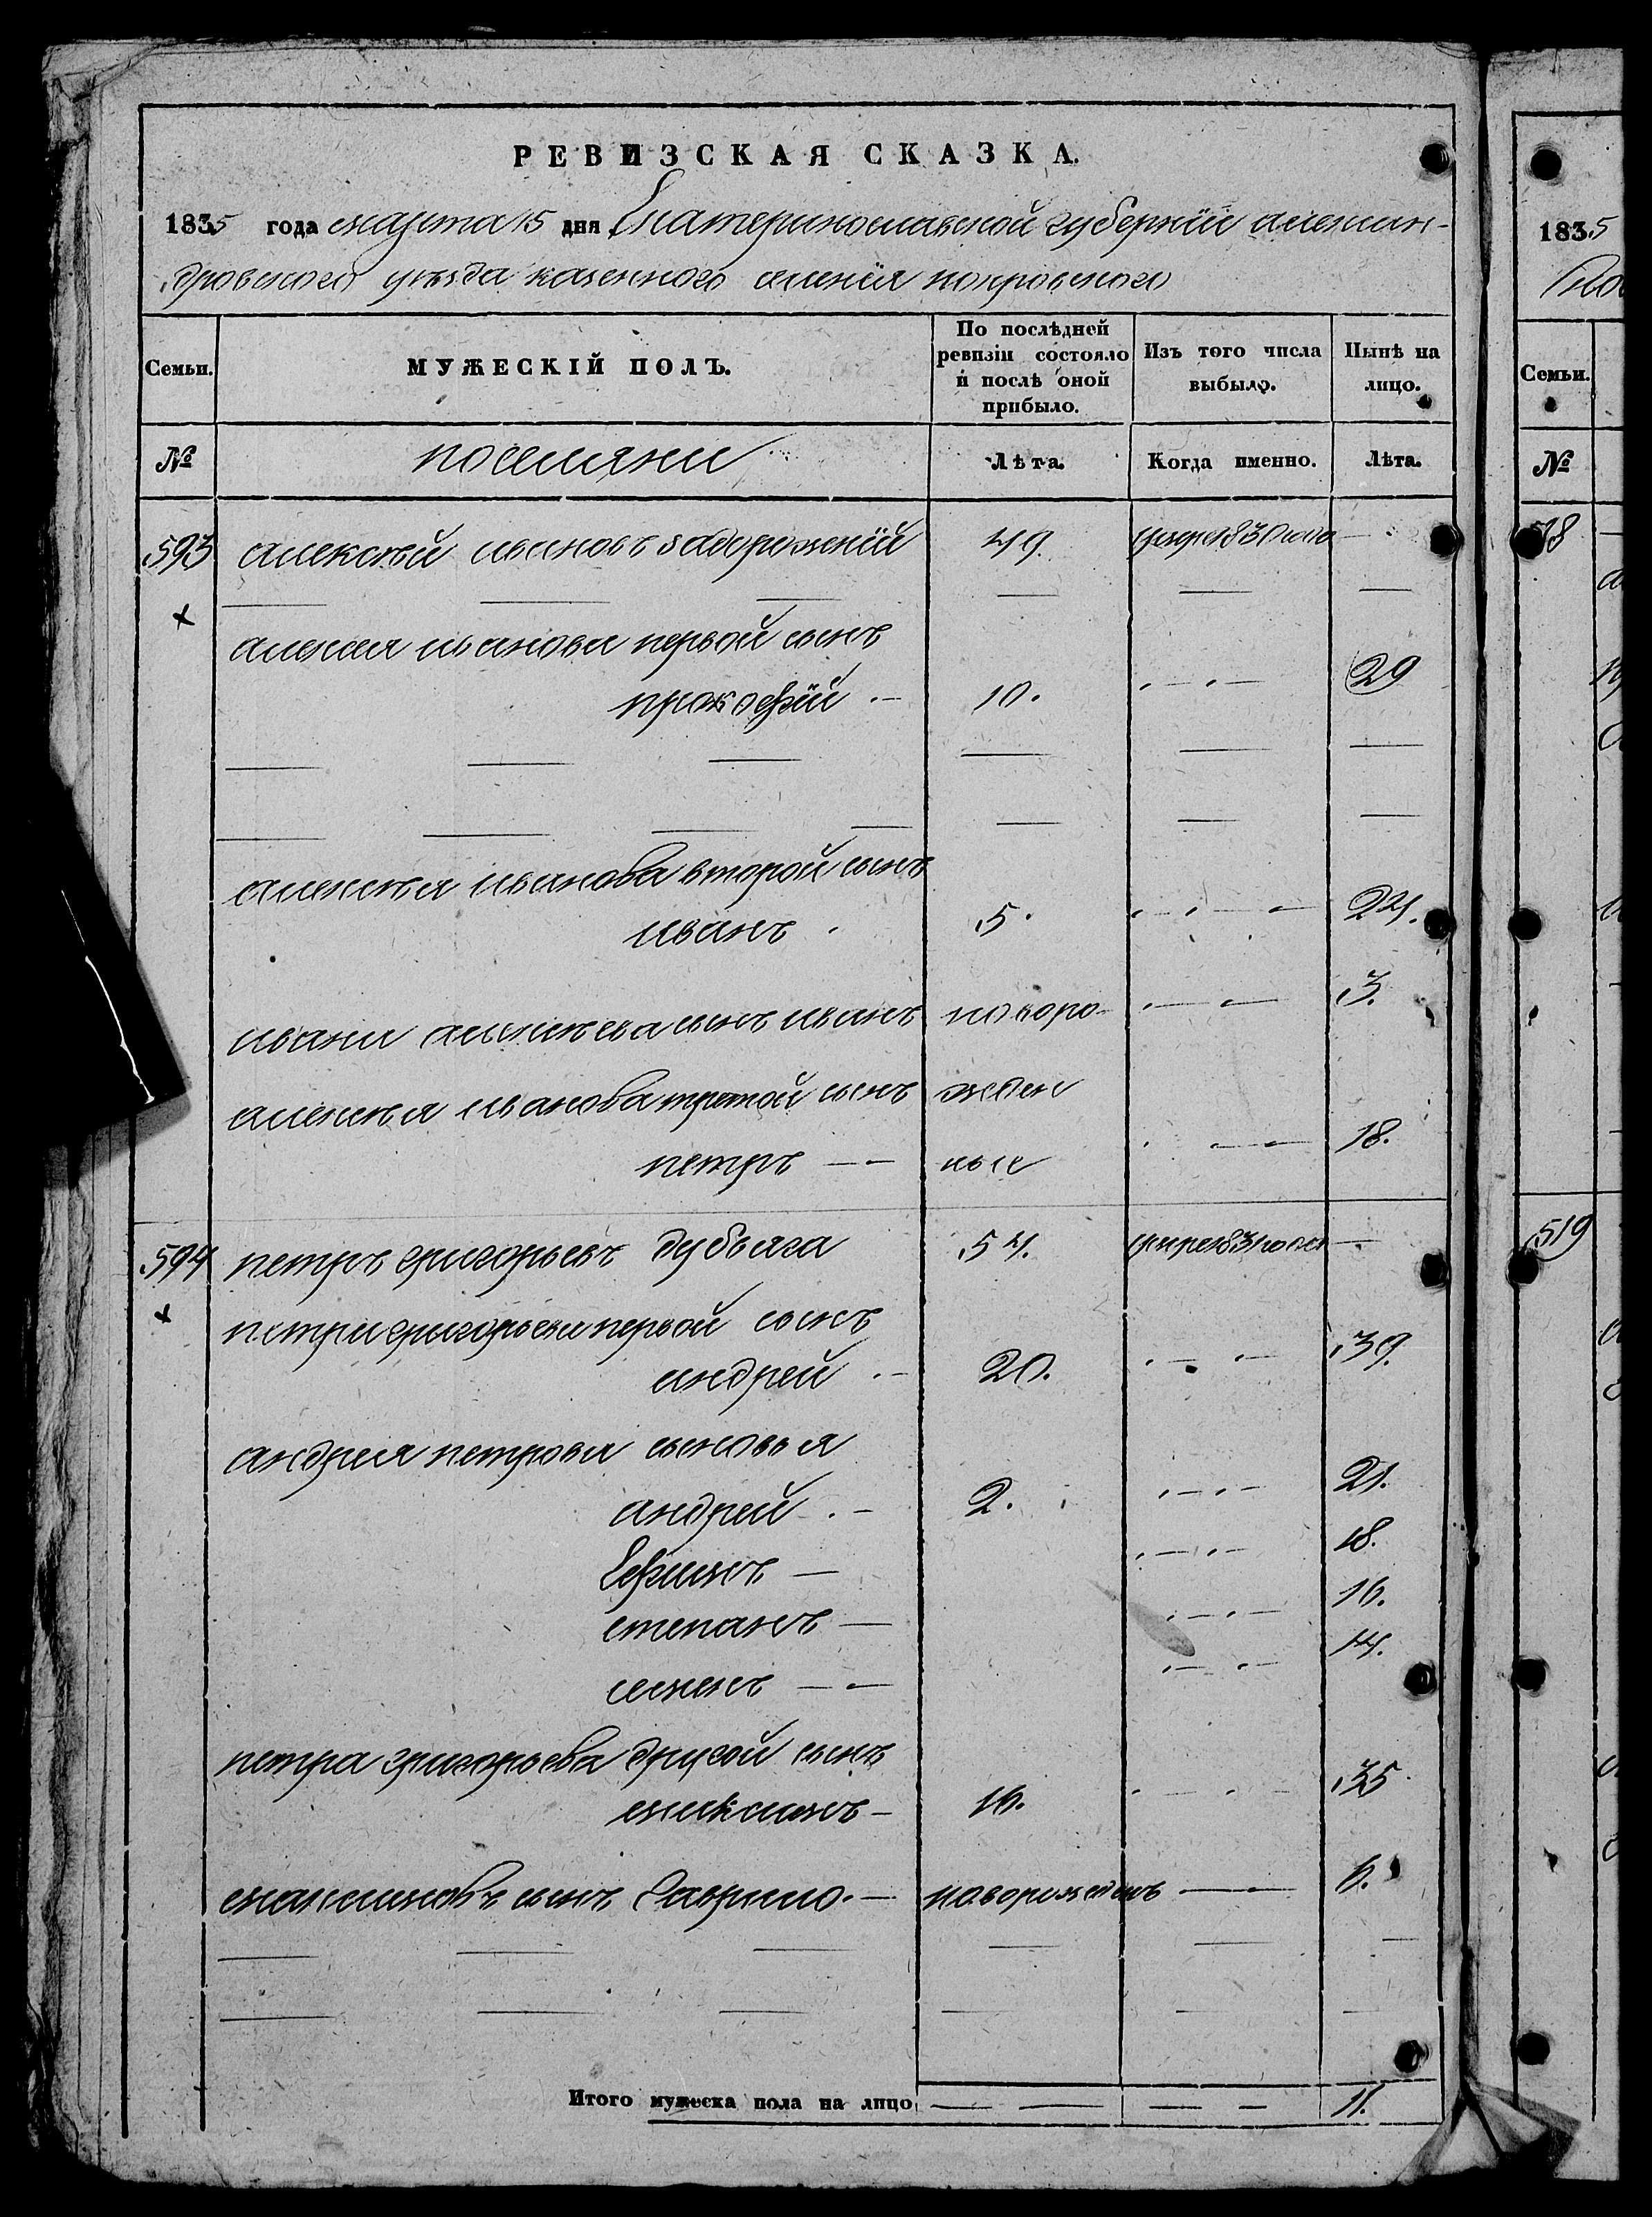 РЕВИЗСКАЯ СКАЗКА.
1835 года марта 15 дня Екатеринославской губернїи александровского уѣзда казенного селенїя покровского
Семьи. МУЖЕСКІЙ ПОЛЪ. По послѣдней ревизіи состояло и послѣ оной прибыло. Изъ того числа выбыло. Нынѣ на лицо.
№ поселяни Лѣта. Когда именно. Лѣта.
593 алексѣй ивановъ задорожнїй 49. умре 830 года —
алексея иванова первой сынъ
прокофїй 10. 29
алексѣя иванова второй сынъ
иванъ 5. 24.
ивана алексѣева сынъ иванъ новоро- 3.
алексѣя иванова третой сынъ жден
петръ ные 18.
594 петръ григорьевъ дубяга 54. умре 831 года —
петра григорьева первой сынъ
андрей 20. 39.
андрея петрова сыновья
андрей 2. 21.
Ефимъ — 18.
степанъ — 16.
семенъ — 14.
петра григорьева другой сынъ
максимъ — 16. 35
максимовъ сынъ Гаврило. — новорожденъ 6.
Итого мужеска пола на лицо 11.
1835
Семьи.
№
518
519